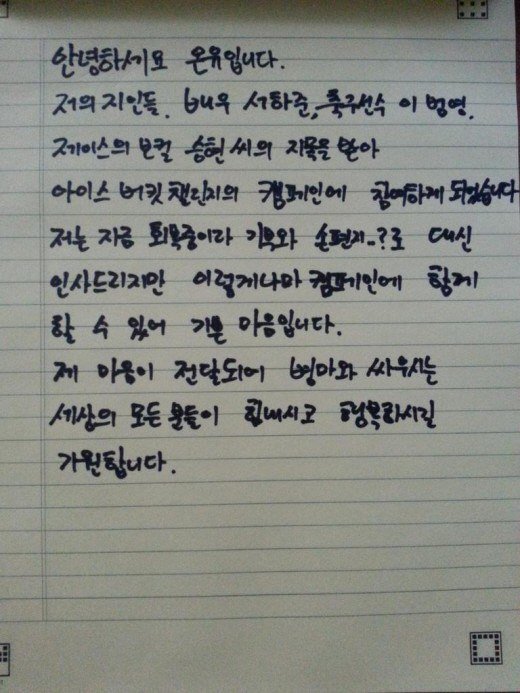 안녕하세요 온유입니다.
저의 지인들. 배우 서하준, 축구선수 이 범영.
제이스의 보컬 승현 씨의 지목을 받아
아이스 버킷 챌린지의 캠페인에 참여하게 되었습니다
저는 지금 회복중이라 기부와 손편지..?로 대신
인사드리지만 이렇게나마 캠페인에 함께
할 수 있어 기쁜 마음입니다.
제 마음이 전달되어 병마와 싸우시는
세상의 모든 분들이 힘내시고 행복하시길
기원합니다.